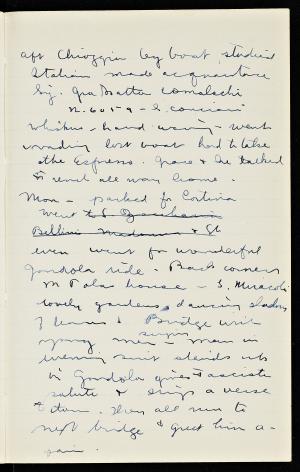 aft Chioggia by boat, studied
Italian made acquaintance
Sig. Gra Batta Comalschi
N. 6059 - S. canciani
whiskers - hand waving - went
wading lost boat had to take
the Espresso. Grace & he talked
all way home.
Mon - packed for Cortina
went to S. Zaccharia
Bellini Madonna & St
even went for wonderful
gondola ride - Back corners
M Polo house - S. Miracoli
lovely gardens dancing shadows
of leaves & Bridge with
young men singers - man in
evening suit stands up
in Gondola gives Fascista
salute & sings a verse
then all run to
next bridge & greet him a-
gain.